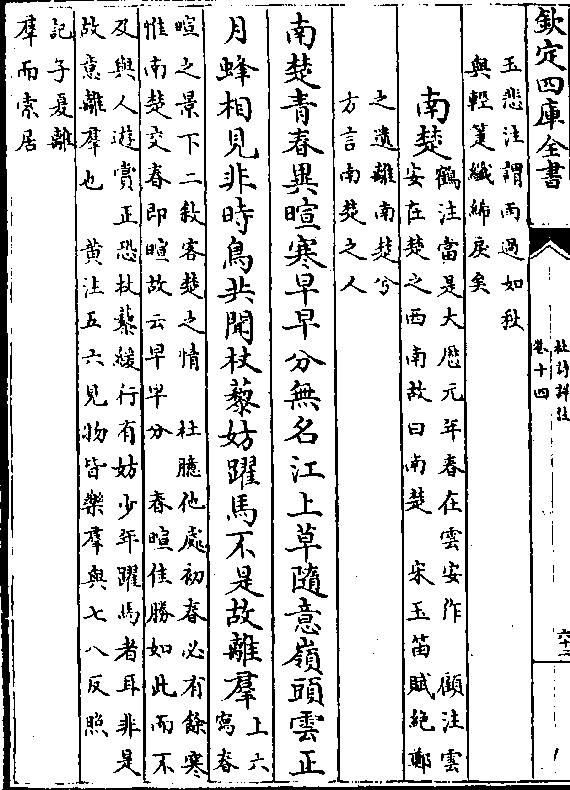 欽定四庫全書
杜詩詳註
卷十四
玉悲注謂雨過如秋
與輕箑纖絺戾矣
南楚
鶴注當是大厯元年春在雲安作　顧注雲
安在楚之西南故曰南楚　宋玉笛賦絶鄭
之遺離南楚兮
方言南楚之人
南楚青春異暄寒早早分無名江上草隨意嶺頭雲正
月蜂相見非時鳥共聞杖藜妨躍馬不是故離羣
上六
寫春
暄之景下二敘客楚之情　杜臆他處初春必有餘寒
惟南楚交春即暄故云早早分　春暄佳勝如此而不
及與人遊賞正恐杖藜緩行有妨少年躍馬者耳非是
故意離群也　黄注五六見物皆樂羣與七八反照
記子夏離
羣而索居